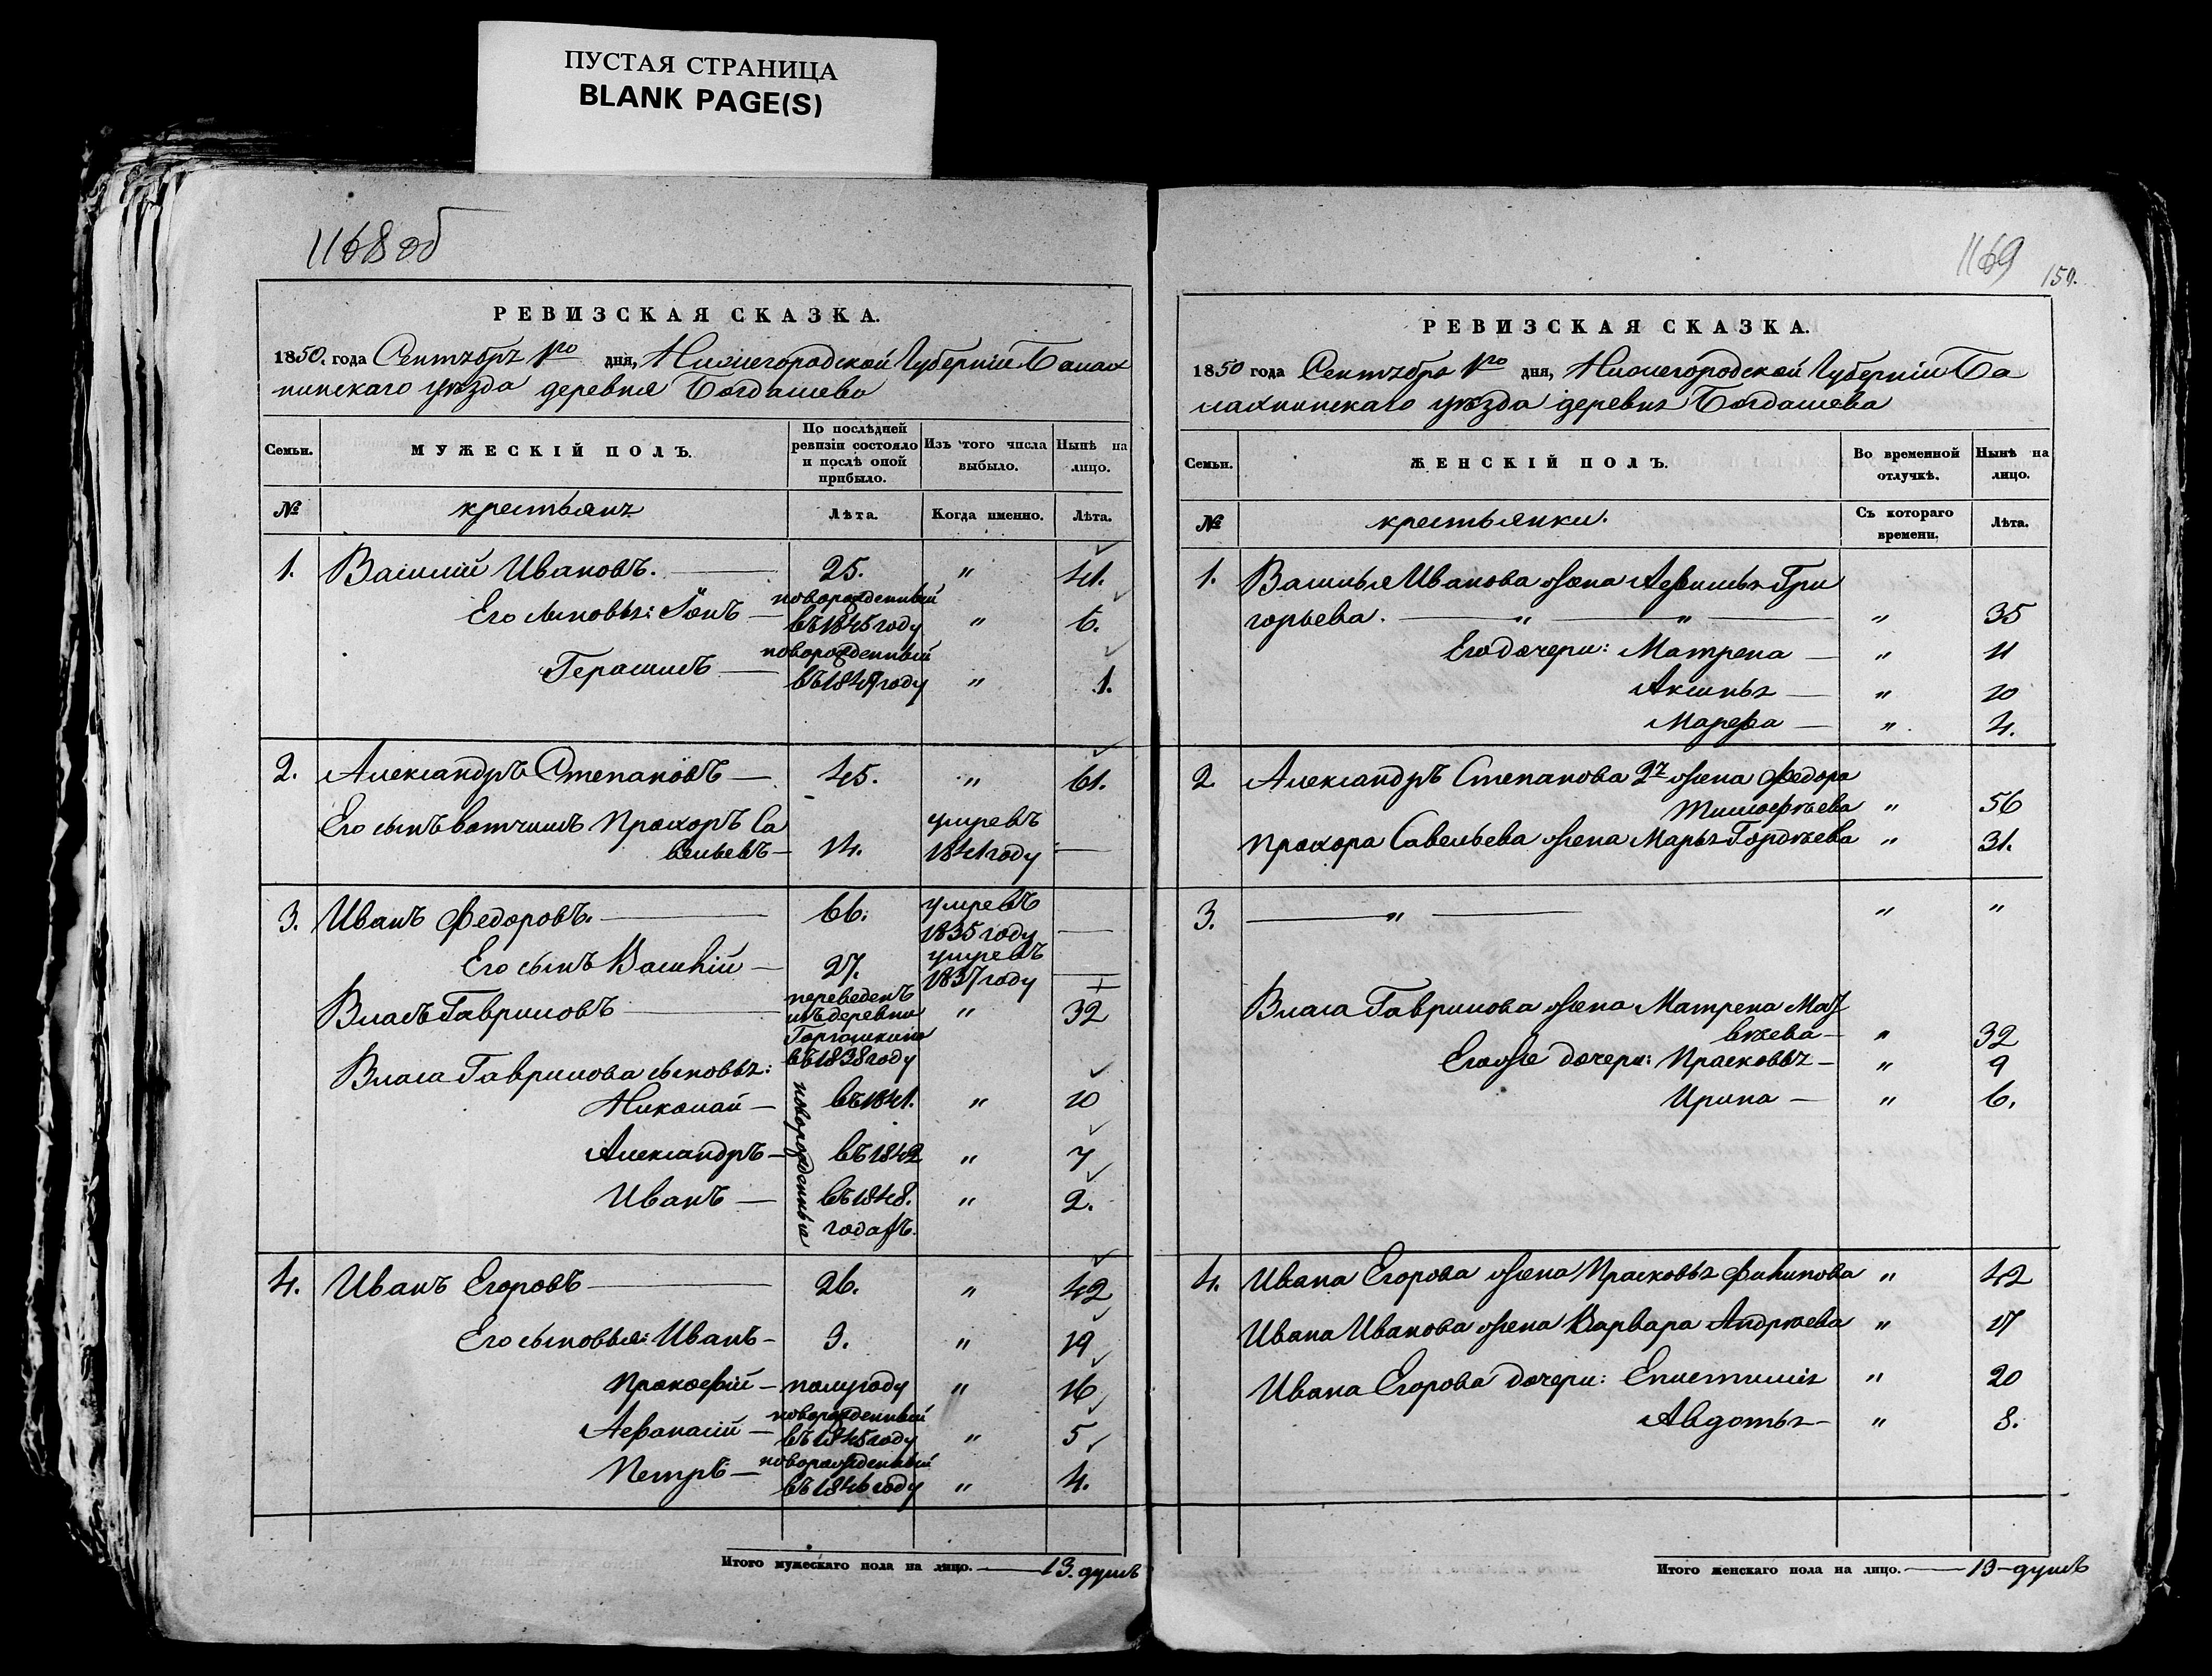 ПУСТАЯ СТРАНИЦА
BLANK PAGE(S)
1168 об
РЕВИЗСКАЯ СКАЗКА.
1850. года Сентября 1го дня, Нижегородской Губернiи Балах
нинскаго уѣзда деревня Богдашево
Семьи. МУЖЕСКІЙ ПОЛЪ. По послѣдней ревизіи состояло и послѣ оной прибыло. Изъ того числа выбыло. Нынѣ на лицо.
№ крестьянѣ Лѣта. Когда именно. Лѣта.
1. Василій Ивановъ. 25. " 41.
Его сыновья: Іонъ новорожденный въ 1845 году " 6.
Герасимъ новорожденный въ 1849 году " 1.
2. Александръ Степановъ 45. " 61.
Его сынъ вотчимъ Прохоръ Са
вельевъ 14. умревъ 1841 году
3. Иванъ Федоровъ. 66. умревъ 1835 году
Его сынъ Василій 27. умревъ 1837 году
Власъ Гавриловъ переведенъ изъ деревни въ 1838 году " 32
Власа Гаврилова сыновья: новорожденныя
Николай въ 1841. " 10
Александръ въ 1842 " 7
Иванъ въ 1848. годахъ. " 2.
4. Иванъ Егоровъ 26. " 42
Его сыновья: Иванъ 3. " 19
Прокофій полугоду " 16
Афанасій новорожденный въ 1845 году " 5
Петръ новорожденный въ 1846 году " 4.
Итого мужескаго пола на лицо. 13. душъ
1169
150.
РЕВИЗСКАЯ СКАЗКА.
1850 года Сентября 1го дня, Нижегородской Губерніи Ба
лахнинскаго уѣзда деревнѣ Богдашева
Семьи. ЖЕНСКІЙ ПОЛЪ. Во временной отлучкѣ. Нынѣ на лицо.
№ крестьянки. Съ котораго времени. Лѣта.
1. Василья Иванова жена Афимья Гри
горьева. " " " 35
Его дочери: Матрена " 11
Аксинья " 10
Марфа " 4.
2. Александръ Степанова 2я жена Федора
Тимофѣева " 56
Прохора Савельева жена Марья Гордѣева " 31.
3. " " "
Власа Гаврилова жена Матрена Мат
вѣева " 32
Егожѣ дочери: Прасковья " 9
Ирина " 6.
4. Ивана Егорова жена Прасковья Филипова " 42
Ивана Иванова жена Варвара Андрѣева " 17
Ивана Егорова дочери: Епистимія " 20
Авдотья " 8.
Итого женскаго пола на лицо. 13 душъ